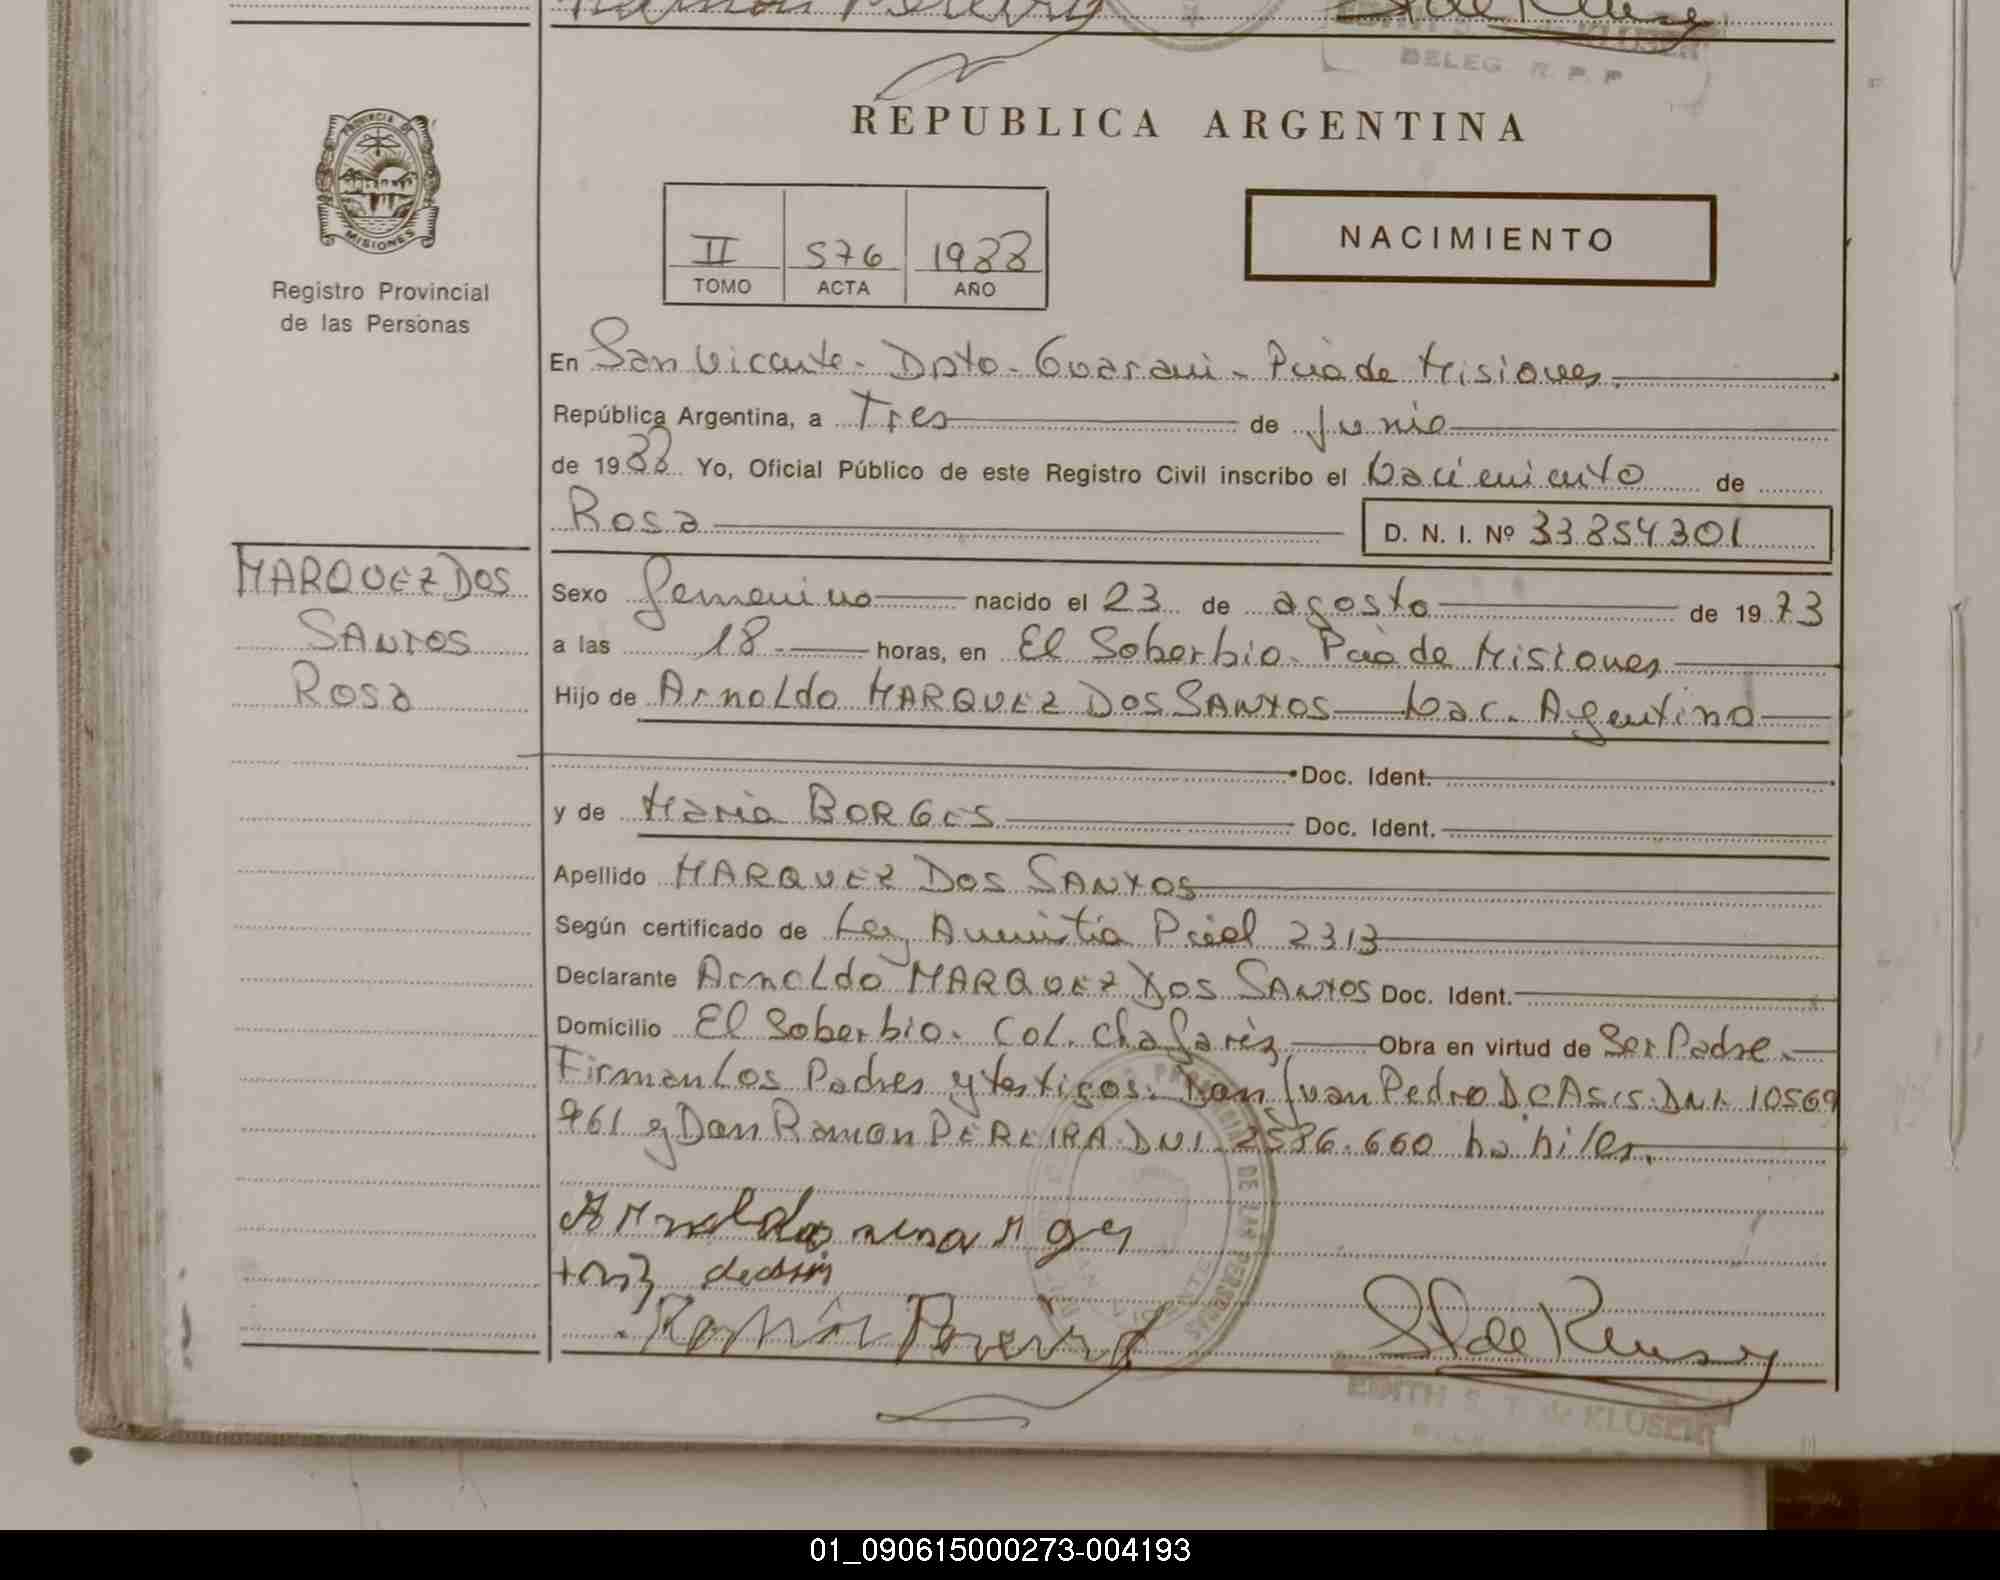 DELEG. R. P. P
PROVINCIA DE
MISIONES
Registro Provincial
de las Personas
REPUBLICA ARGENTINA
II 576 1988
TOMO ACTA AÑO
NACIMIENTO
En San Vicente - Dpto - Guarani - Pcia de Misiones.
República Argentina, a Tres de Junio
de 1988 Yo, Oficial Público de este Registro Civil inscribo el Nacimiento de
Rosa D. N. I. Nº 33854301
MARQUEZ DOS
SANTOS
Rosa
Sexo femenino nacido el 23 de agosto de 1973
a las 18 horas, en El Soberbio - Pcia de Misiones
Hijo de Arnoldo MARQUEZ DOS SANTOS Nac. Argentina
Doc. Ident.
y de Maria BORGES Doc. Ident.
Apellido MARQUEZ DOS SANTOS
Según certificado de Ley Amnistia Pcial 2313
Declarante Arnoldo MARQUEZ DOS SANTOS Doc. Ident.
Domicilio El Soberbio. Col. Chafariz, Obra en virtud de Ser Padre.
Firman Los Padres y testigos: Don Juan Pedro D.C ASIS. DNI. 10569
961 y Don Ramon PEREIRA. DNI. 2586.660 ha hiles.
Arnoldo
Ramón Pereira
EDITH S. T. de KLUSENER
01_090615000273-004193